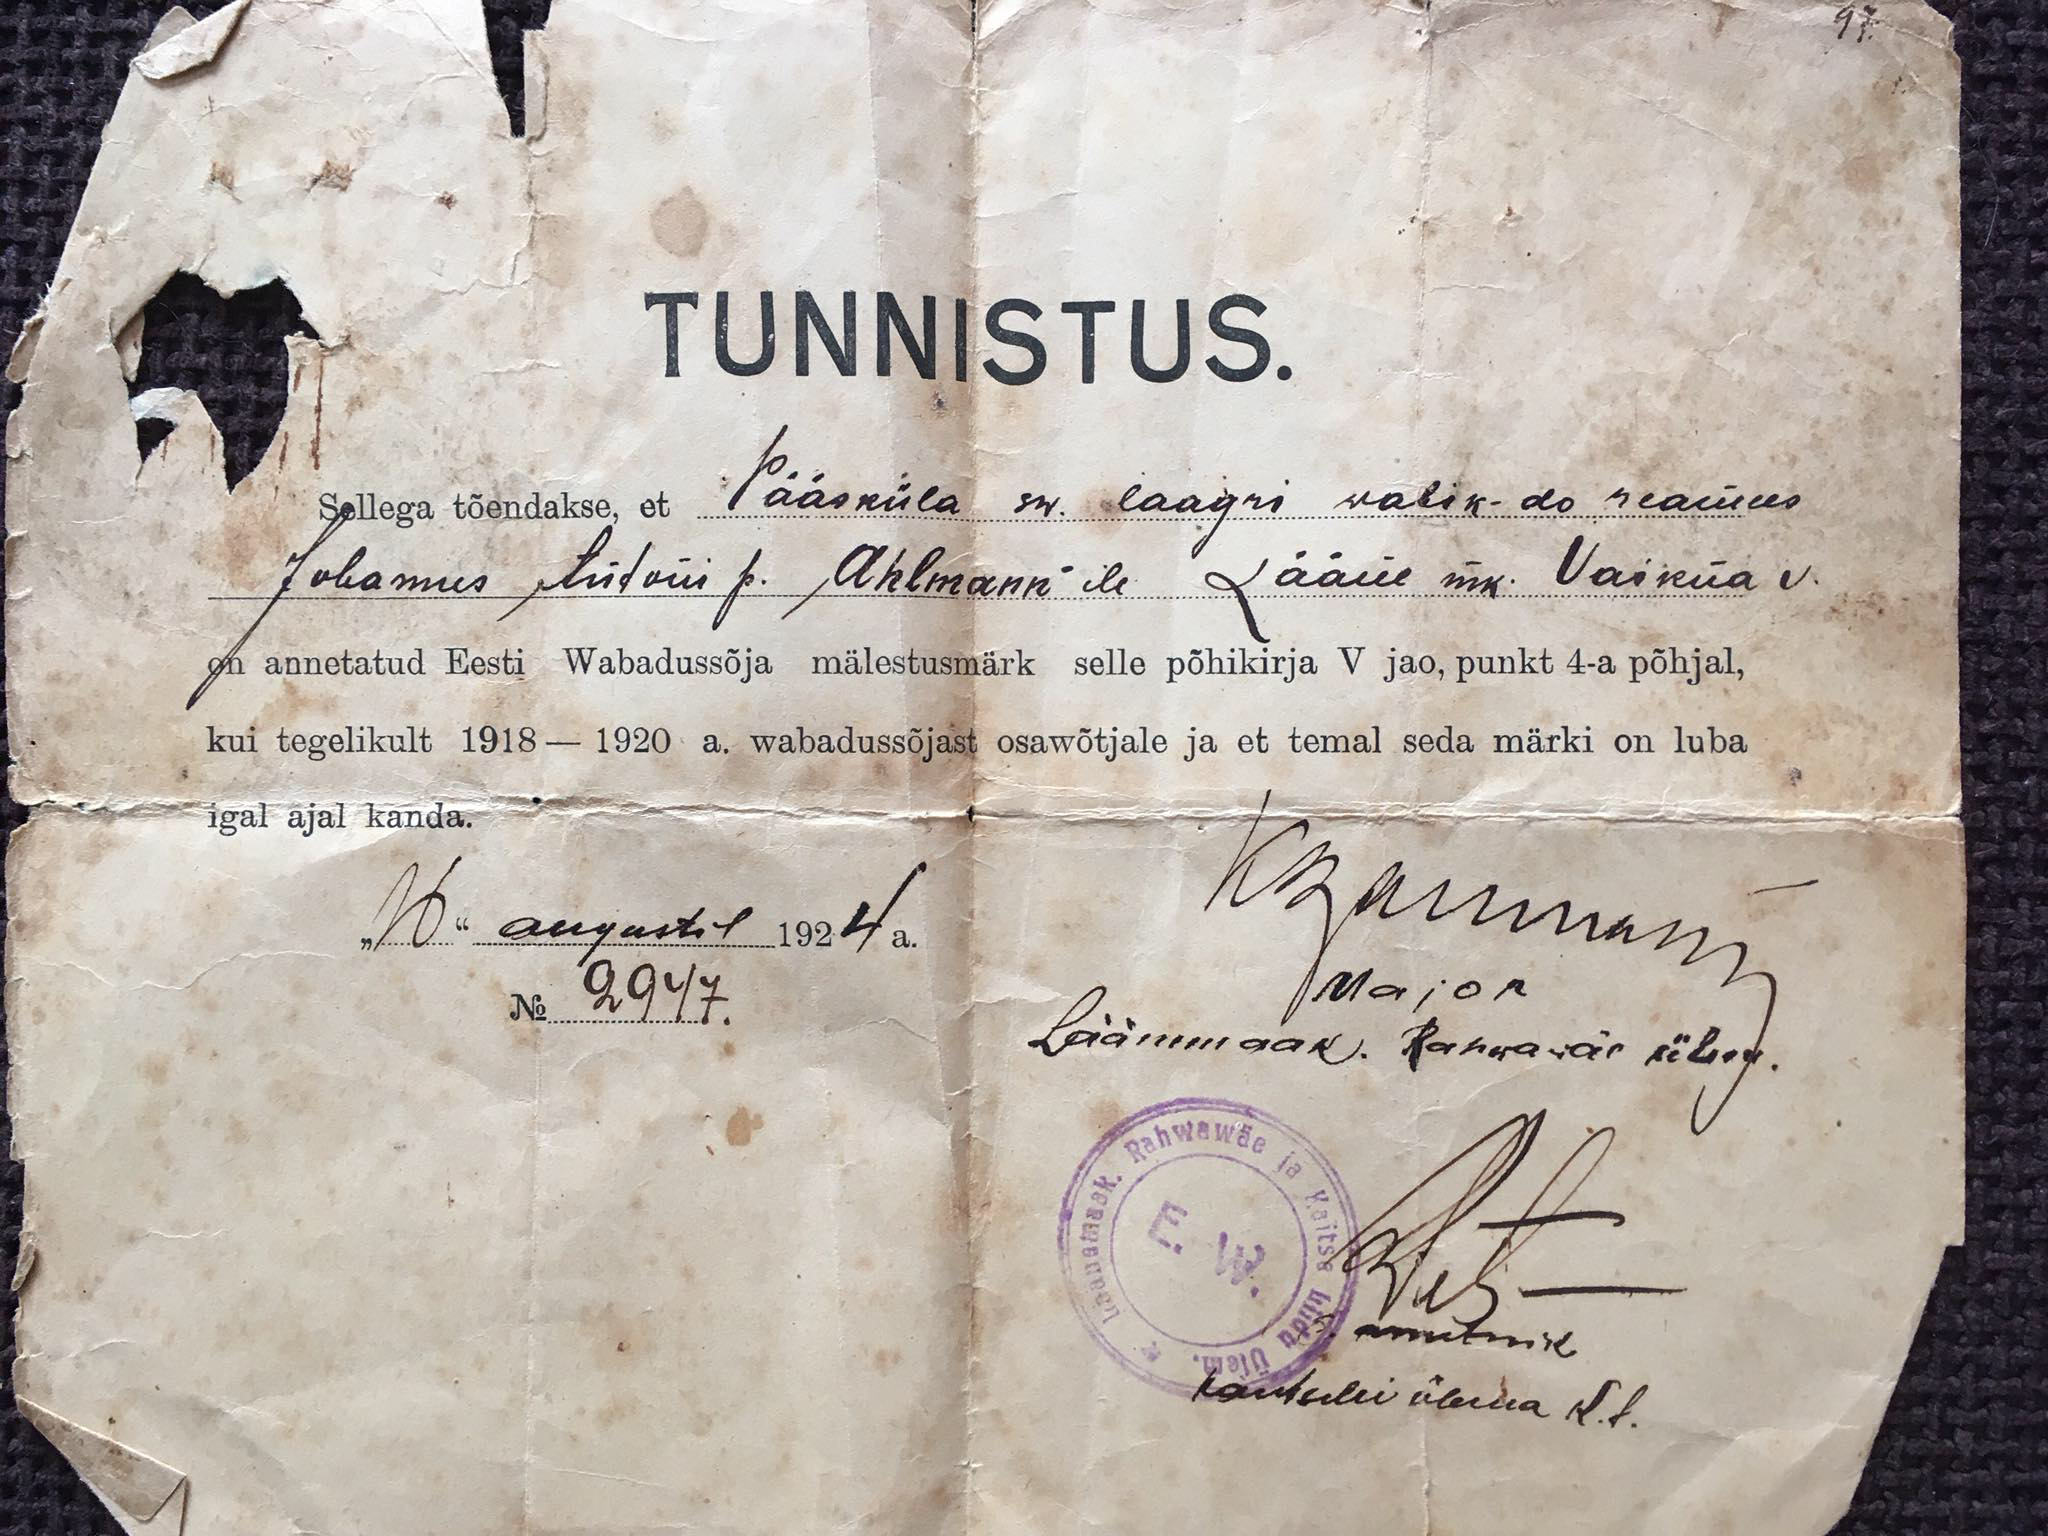 97.
TUNNISTUS.
Sellega tõendakse, et Pääsküla sw. laagri walik-do reamees
Johannes Antoni p. Ahlmann'ile Lääne mk. Vaikna v.
on annetatud Eesti Wabadussõja mälestusmärk selle põhikirja V jao, punkt 4-a põhjal,
kui tegelikult 1918 — 1920 a. wabadussõjast osawõtjale ja et temal seda märki on luba
igal ajal kanda.
„16“ augustil 1924 a.
№ 2947.
Major
Läänemaak. Rahwawäe ülem.
Läänemaak. Rahwawäe ja Kaitse Liidu Ülem.
E. W.
Kantselei ülema k.t.